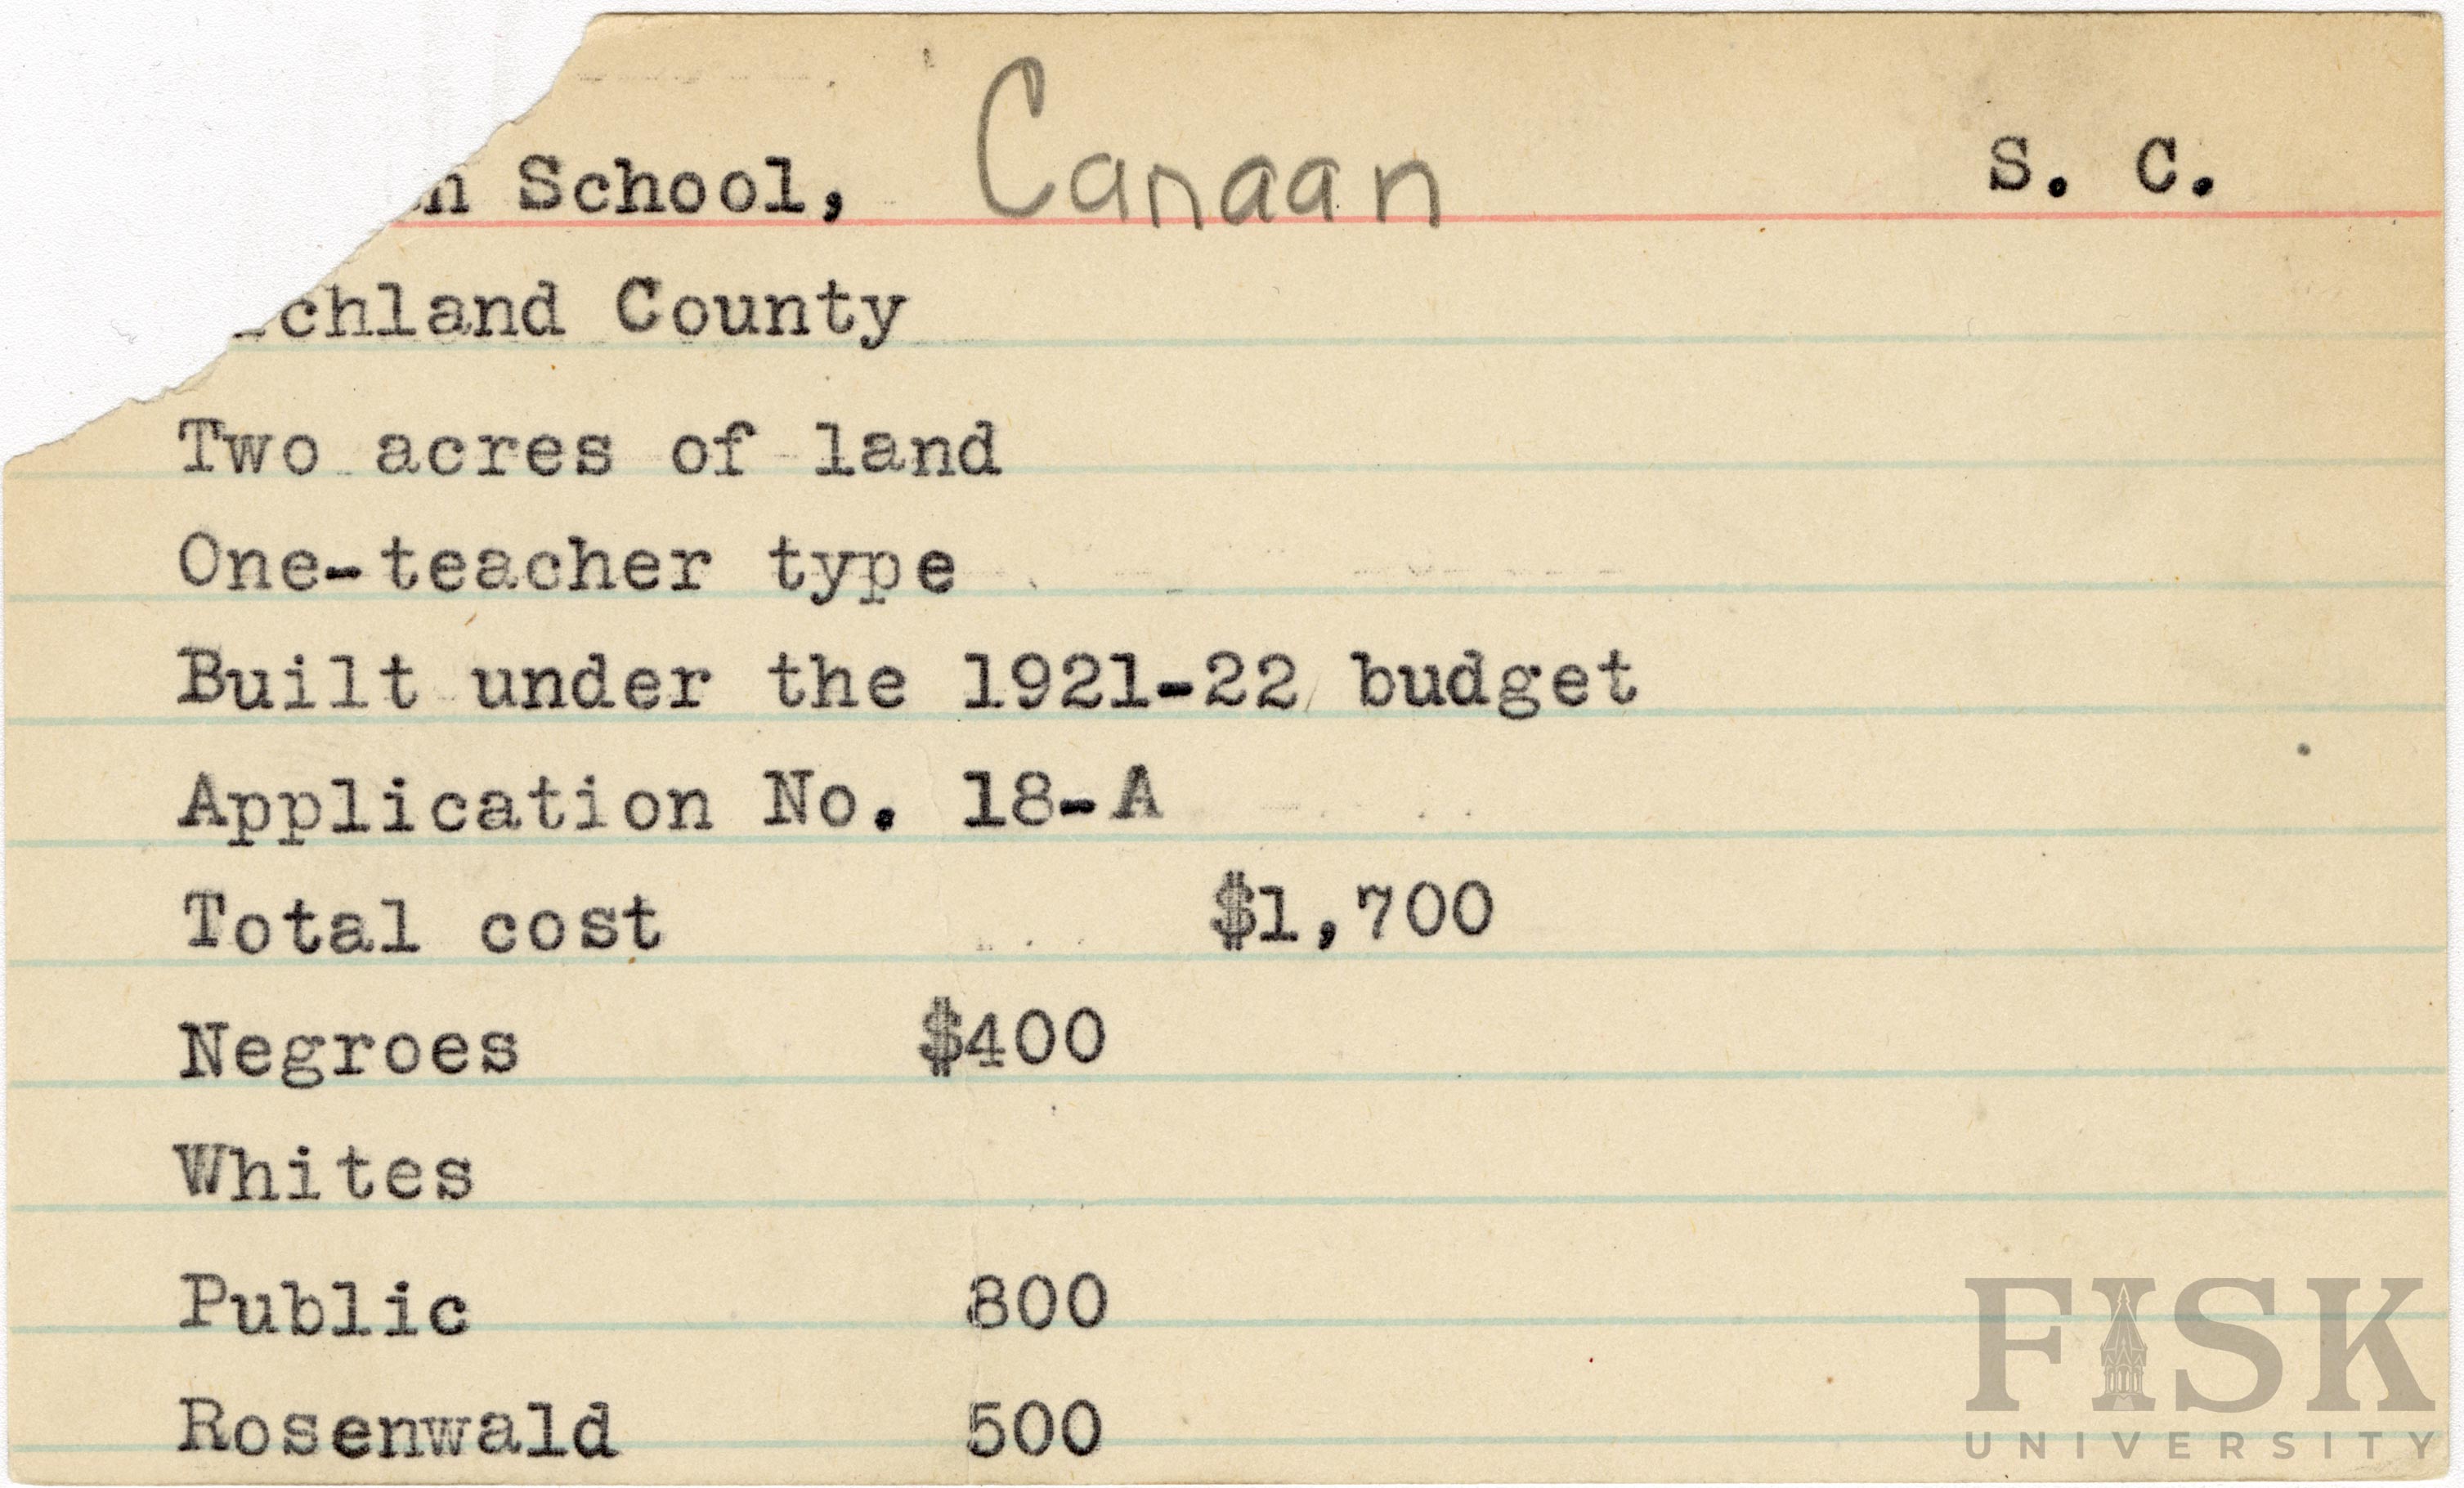 n School, Canaan S. C.
chland County
Two acres of land
One-teacher type
Built under the 1921-22 budget
Application No. 18-A
Total cost $1,700
Negroes $400
Whites
Public 800
Rosenwald 500
FISK
UNIVERSITY